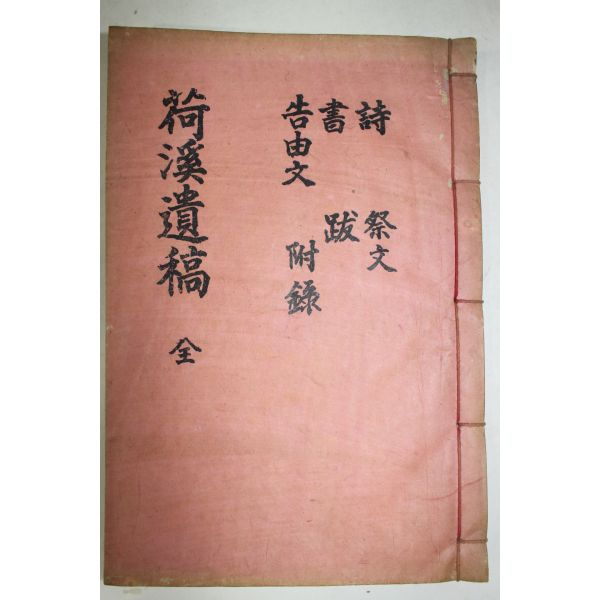 詩 祭文
書 跋
告由文 附錄
荷溪遺稿 全